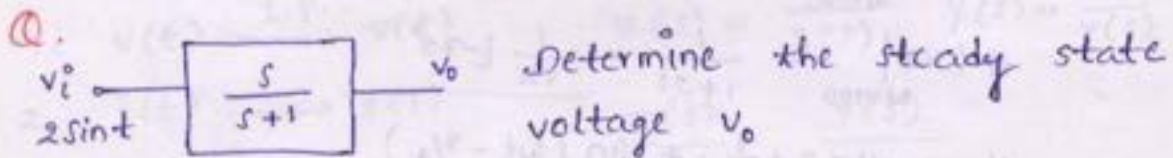 Q.
vi s/s+1 v₀ Determine the steady state
2sint voltage v₀